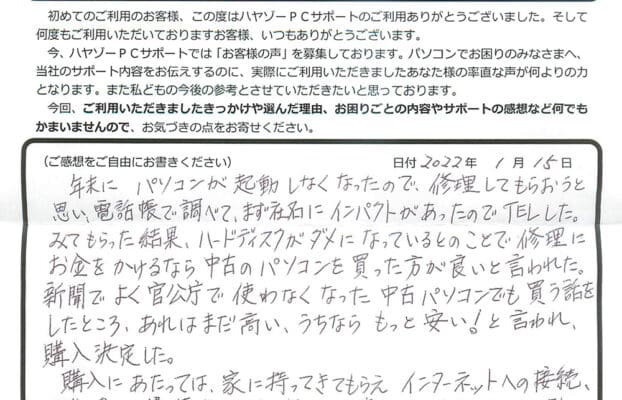 初めてのご利用のお客様、この度はハヤゾーPCサポートのご利用ありがとうございました。そして
何度もご利用いただいておりますお客様、いつもありがとうございます。
今、ハヤゾーPCサポートでは「お客様の声」を募集しております。パソコンでお困りのみなさまへ、
当社のサポート内容をお伝えするのに、実際にご利用いただきましたあなた様の率直な声が何よりの力
となります。また私どもの今後の参考とさせていただきたいと思っております。
今回、ご利用いただきましたきっかけや選んだ理由、お困りごとの内容やサポートの感想など何でも
かまいませんので、お気づきの点をお寄せください。
(ご感想をご自由にお書きください) 日付 2022年 1月 15日
年末に パソコンが起動しなくなったので、修理してもらおうと
思い、電話帳で調べて、まず社名にインパクトがあったのでTELした。
みてもらった結果、ハードディスクがダメになっているとのことで修理に
お金をかけるなら中古のパソコンを買った方が良いと言われた。
新聞でよく官公庁で使わなくなった中古パソコンでも買う話を
したところ、あれはまだ高い、うちなら もっと安い!と言われ、
購入決定した。
購入にあたっては、家に持ってきてもらえ インターネットへの接続、